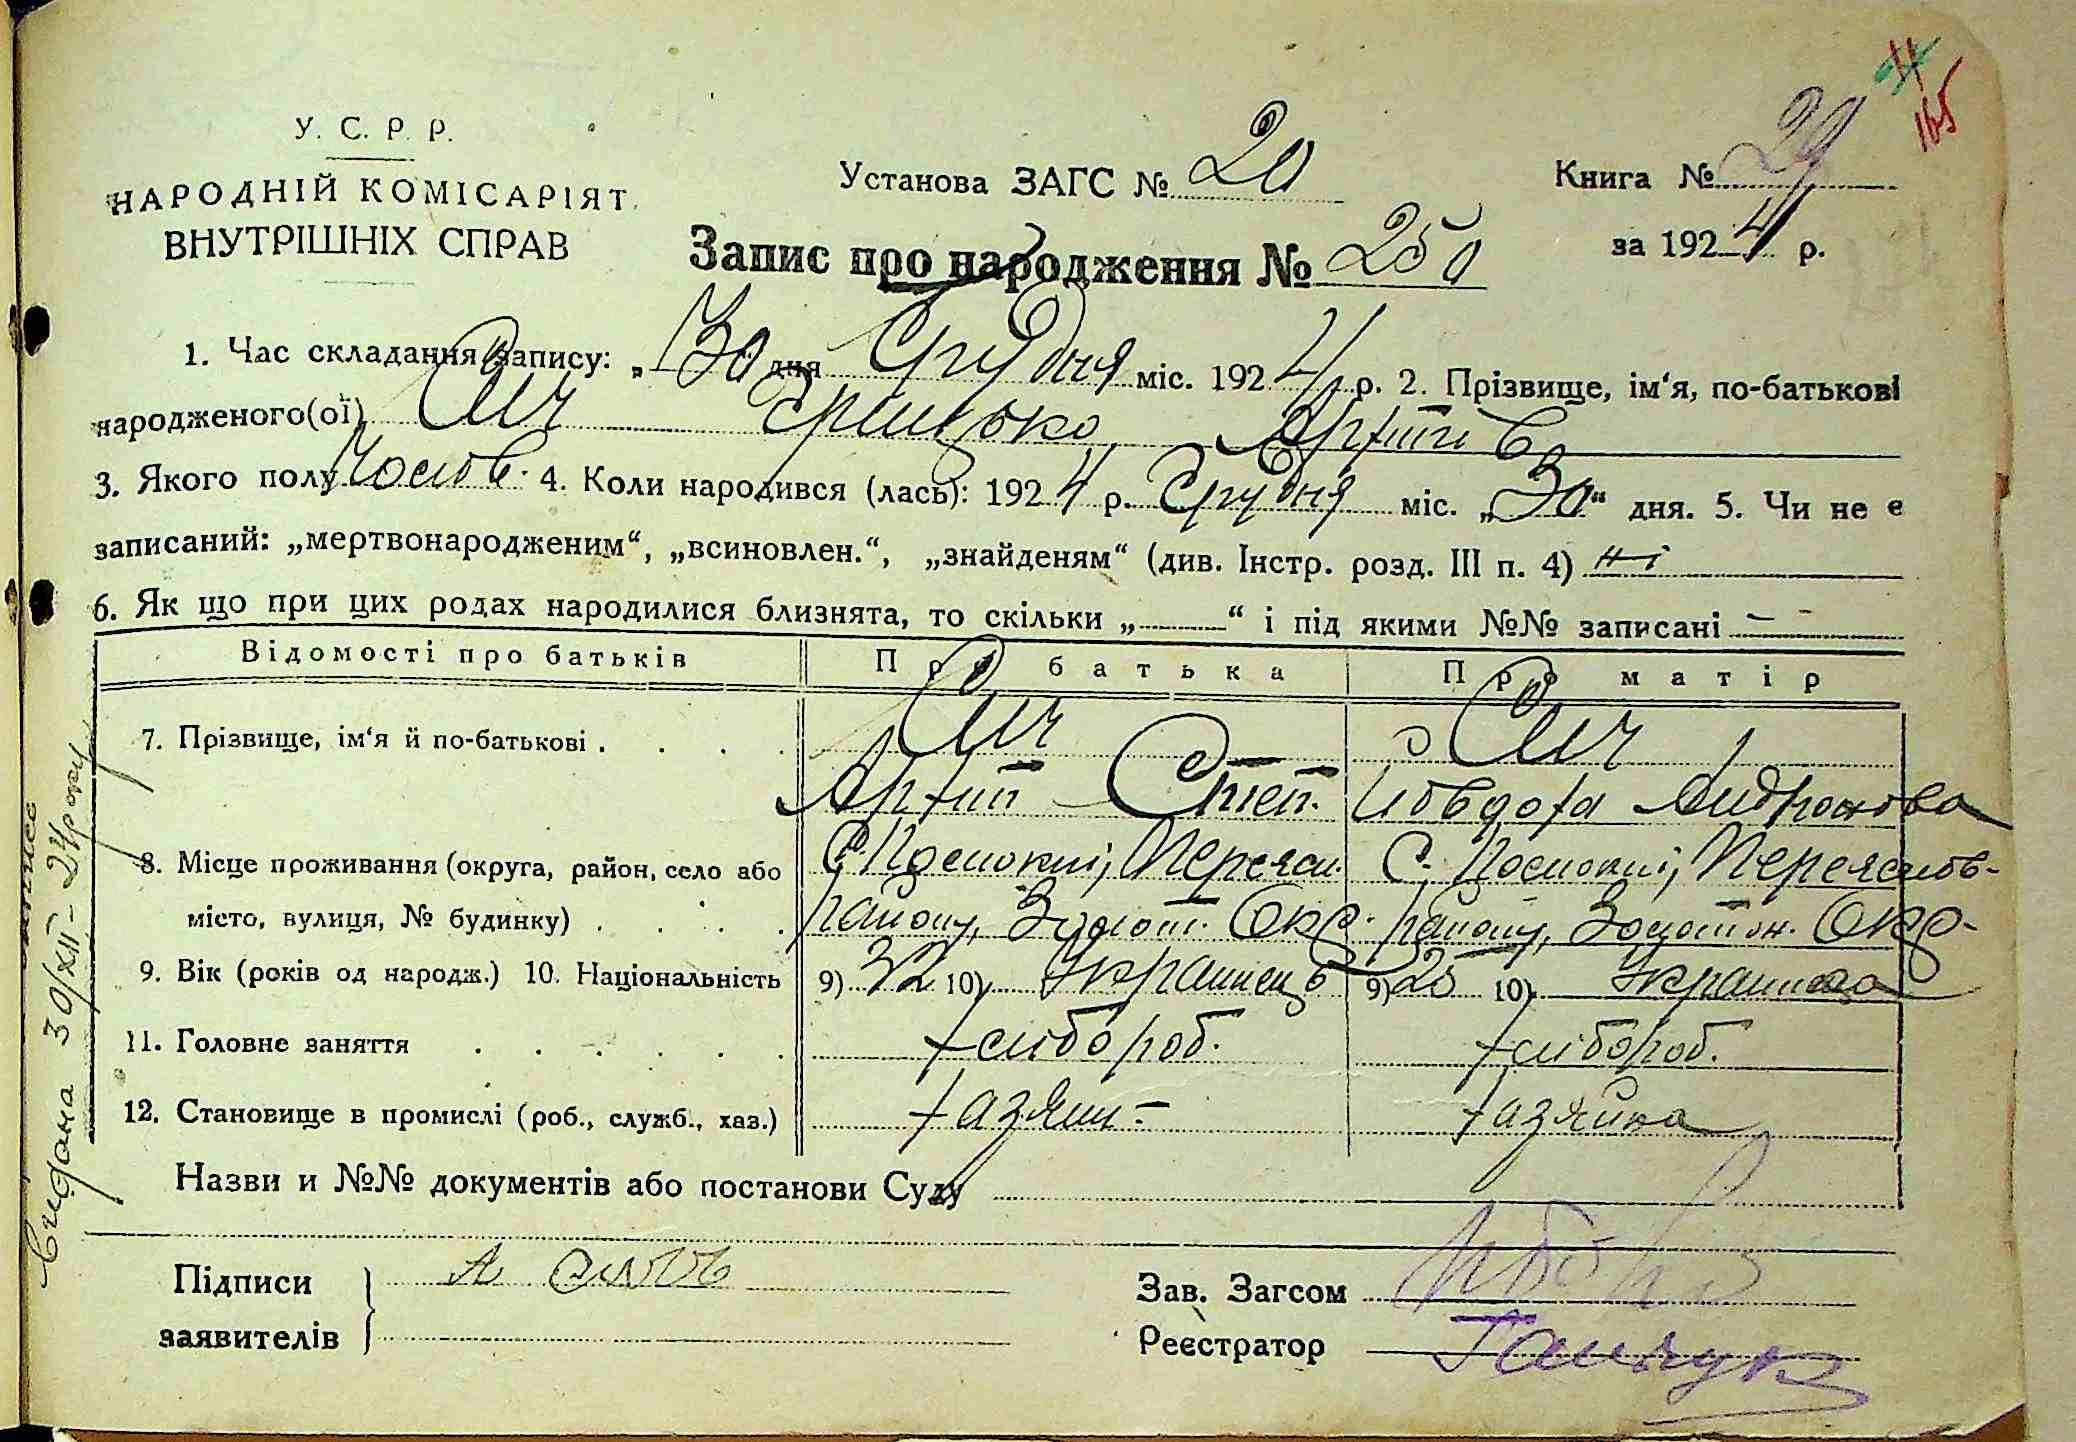 У. С. Р. Р.
НАРОДНІЙ КОМІСАРІЯТ
ВНУТРІШНІХ СПРАВ
Установа ЗАГС № 20
Книга № 29
за 1924 р.
165
Запис про народження № 250
1. Час складання запису: „30 дня Грудня міс. 1924 р. 2. Прізвище, ім‘я, по-батькові
народженого(ої) Сич Грицько Архипів
3. Якого полу Чолов. 4. Коли народився (лась): 1924 р. Грудня міс. „30“ дня. 5. Чи не є
записаний: „мертвонародженим“, „всиновлен.“, „знайденям“ (див. Інстр. розд. III п. 4) ні
6. Як що при цих родах народилися близнята, то скільки „—“ і під якими №№ записані —
Відомості про батьків Про батька Про матір
7. Прізвище, ім‘я й по-батькові . . . . Сич Сич
Архип Степ. Явдоха Андронова
8. Місце проживання (округа, район, село або С. Переясл. С. Переяслов-
місто, вулиця, № будинку) . . . . району, Золот. Окр. району, Золотон. Окр.
9. Вік (років од народж.) 10. Національність 9) 32 10) Українець 9) 25 10) Українка
11. Головне заняття . . . . . . хлібороб. хлібороб.
12. Становище в промислі (роб., служб., хаз.) хазяїн - хазяйка
Назви и №№ документів або постанови Суду
Підписи заявителів А Сичь
Зав. Загсом
Реєстратор
Видана 30/XII-24 року